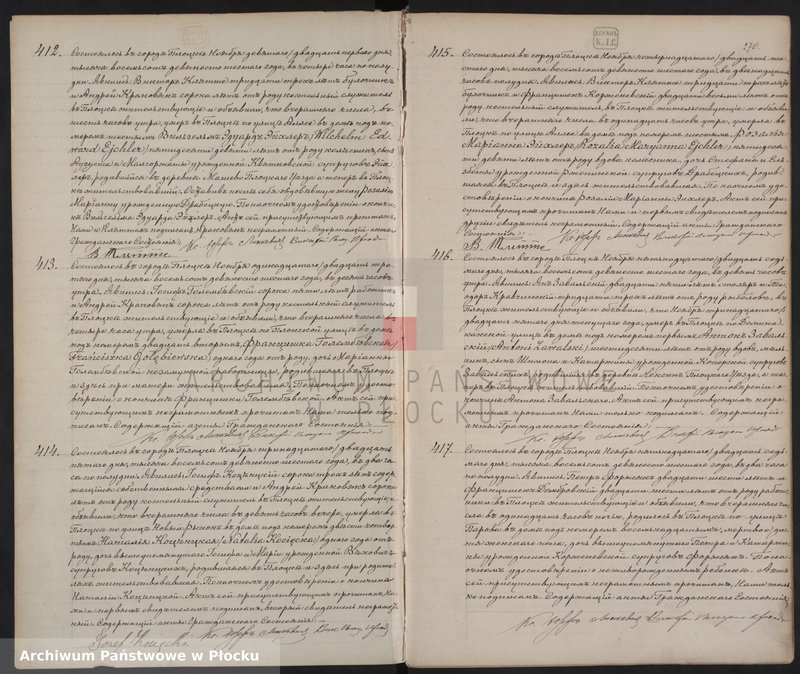 412.
Состоялось въ городѣ Плоцкѣ Ноября девятаго/двадцать перваго дня,
тысяча восемьсотъ девяносто шестого года, въ четыре часа по полу-
дни. Явились Викторъ Клятте тридцати трехъ лѣтъ булочникъ
и Андрей Краковякъ сорока лѣтъ отъ роду костельный служитель
въ Плоцкѣ жительствующіе и объявили, что вчерашняго числа, въ
шесть часовъ утра, умеръ въ Плоцкѣ по улицѣ Аллеѣ въ домѣ подъ но-
меромъ шестымъ Вильгельмъ Эдуардъ Эйхлеръ /Wilchelm Ed-
ward Ejchler/ пятидесяти девяти лѣтъ отъ роду сынъ
Августа и Малгоржаты урожденной супруговъ Эйх-
леръ, родившійся въ деревнѣ Плоцкаго Уѣзда а теперь въ Плоц-
кѣ жительствовавшій. Оставивъ послѣ себя овдовѣвшую жену Розалію
Маріанну урожденную Драбецкую. По наочномъ удостовѣреніи о кончи-
нѣ Вильгельма Эдуарда Эйхлеръ, Актъ сей присутствующимъ прочитанъ,
Нами и Кляттемъ подписанъ, Краковякъ неграмотный. Содержащій акты
Гражданскаго Состоянія.
В. Тлятте
413.
Состоялось въ городѣ Плоцкѣ Ноября одинадцатаго/двадцать тре-
тьяго дня, тысяча восемьсотъ девяносто шестого года, въ десять часовъ
утра. Явились Іосифъ Голембѣвскій сорока пяти лѣтъ работникъ
и Андрей Краковякъ сорока лѣтъ отъ роду костельный служитель
въ Плоцкѣ жительствующіе и объявили, что вчерашняго числа въ
четыре часа утра, умерла въ Плоцкѣ по Плонской улицѣ въ домѣ
подъ номеромъ двадцать вторымъ, Францишка Голембѣвская
/Franciszka Gołębiewska/ одного года отъ роду, дочь Маріанны
Голембѣвской незамужней работницы, родившаяся въ Плоцкѣ
и здѣсь при матери жительствовавшая. По наочномъ удосто-
вѣреніи о кончинѣ Францишки Голембѣвской, Актъ сей при-
сутствующимъ неграмотнымъ прочитанъ Нами только под-
писанъ. Содержащій акты Гражданскаго Состоянія.
414.
Состоялось въ городѣ Плоцкѣ Ноября тринадцатаго/двадцать
пятаго дня, тысяча восемьсотъ девяносто шестого года, въ два ча-
са по полудни. Явились Іосифъ Коцѣнцкій сорока трехъ лѣтъ содер-
жащійся собственными средствами и Андрей Краковякъ сорока
лѣтъ отъ роду костельный служитель въ Плоцкѣ жительствующіе, и
объявили, что вчерашняго числа въ девять часовъ вечера, умерла въ
Плоцкѣ по улицѣ Новый Рынокъ въ домѣ подъ номеромъ двасти четвер-
тымъ Наталія Коцѣнцкая /Natalia Kocięcka/ одного года отъ
роду, дочь вышеупомянутаго Іосифа и Маріи урожденной
супруговъ Коцѣнцкихъ, родившаяся въ Плоцкѣ и здѣсь при родите-
ляхъ жительствовавшая. По наочномъ удостовѣреніи о кончинѣ
Наталіи Коцѣнцкой, Актъ сей присутствующимъ прочитанъ, На-
ми и первымъ свидѣтелемъ подписанъ, второй свидѣтель неграмот-
ный. Содержащій акты Гражданскаго Состоянія.
415.
Состоялось въ городѣ Плоцкѣ Ноября четырнадцатаго/двадцать ше-
стаго дня, тысяча восемьсотъ девяносто шестого года, въ двѣнадцать
часовъ полудня. Явились Викторъ Клятте тридцати трехъ лѣтъ
булочникъ и Францишекъ Корженевскій двадцати восьми лѣтъ отъ
роду костельный служитель, въ Плоцкѣ жительствующіе и объяви-
ли, что вчерашняго числа въ одинадцать часовъ утра, умерла въ
Плоцкѣ по улицѣ Аллеѣ въ домѣ подъ номеромъ шестымъ, Розалія
Маріанна Эйхлеръ /Rozalia Maryanna Ejchler/ пятидеся-
ти девяти лѣтъ отъ роду вдова дочь Стефана и Ели-
заветы урожденной супруговъ Драбецкихъ, родив-
шаяся въ Плоцкѣ и здѣсь жительствовавшая. По наочномъ удо-
стовѣреніи о кончинѣ Розаліи Маріанны Эйхлеръ, Актъ сей при-
сутствующимъ прочитанъ Нами и первымъ свидѣтелемъ подписанъ
другой свидѣтель неграмотный. Содержащій акты Гражданскаго
Состоянія.
В. Тлятте
416.
Состоялось въ городѣ Плоцкѣ Ноября пятнадцатаго/двадцать седь-
маго дня, тысяча восемьсотъ девяносто шестого года, въ девять часовъ
утра. Явились Янъ Завальскій двадцати пяти лѣтъ столяръ и Тео-
доръ Кравчинскій тридцати трехъ лѣтъ отъ роду рыболовъ, въ
Плоцкѣ жительствующіе и объявили, что Ноября тринадцатаго/
двадцать пятаго дня текущаго года, умеръ въ Плоцкѣ по
улицѣ въ домѣ подъ номеромъ первымъ, Антонъ Заваль-
скій /Antoni Zawalski/ шестидесяти лѣтъ отъ роду вдовъ,
сынъ Шимона и Катаржины урожденной супруговъ
Завальскихъ, родившійся въ деревнѣ Плоцкаго Уѣзда, а те-
перь въ Плоцкѣ жительствовавшій. По наочномъ удостовѣреніи о
кончинѣ Антона Завальскаго, Актъ сей присутствующимъ негра-
мотнымъ прочитанъ Нами только подписанъ. Содержащій
акты Гражданскаго Состоянія.
417.
Состоялось въ городѣ Плоцкѣ Ноября пятнадцатаго/двадцать седь-
маго дня, тысяча восемьсотъ девяносто шестого года, въ два часа
по полудни. Явились Петръ двадцати шести лѣтъ и
Францишекъ Домбровскій двадцати восьми лѣтъ отъ роду работ-
ники въ Плоцкѣ жительствующіе и объявили, что вчерашняго чи-
сла въ одинадцать часовъ ночи, родилось въ Плоцкѣ по улицѣ
въ домѣ подъ номеромъ восемнадцатымъ, мертвое ди-
тя женскаго пола, дочь вышеупомянутаго Петра и Катаржи-
ны урожденной Корженевской супруговъ По нао-
чномъ удостовѣреніи о мертворожденномъ ребенкѣ, Актъ
сей присутствующимъ неграмотнымъ прочитанъ, Нами толь-
ко подписанъ. Содержащій акты Гражданскаго Состоянія.
270.
ARCHIWUM PAŃSTWOWE
W PŁOCKU
Archiwum Państwowe w Płocku